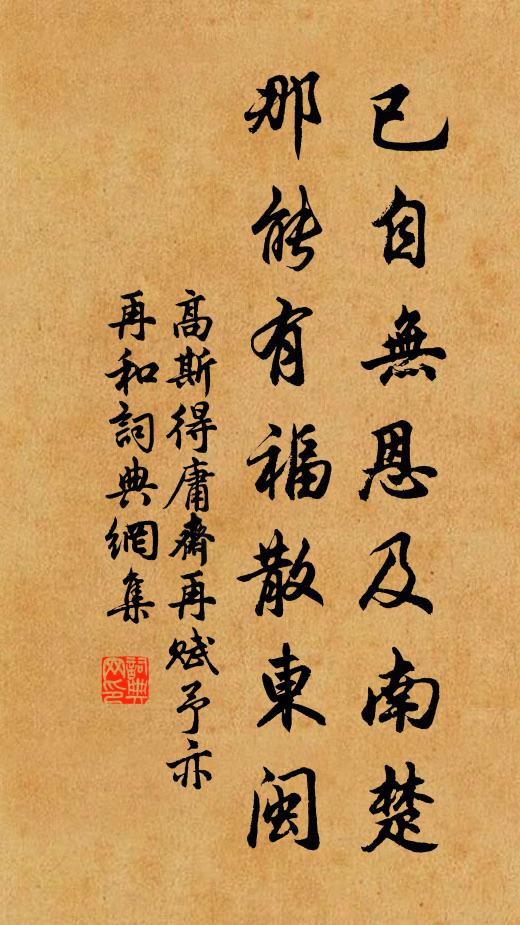 已自無恩及南楚
那能有福散東閩
高斯得庸齋再賦予亦
再和詞典網集
詞典网印